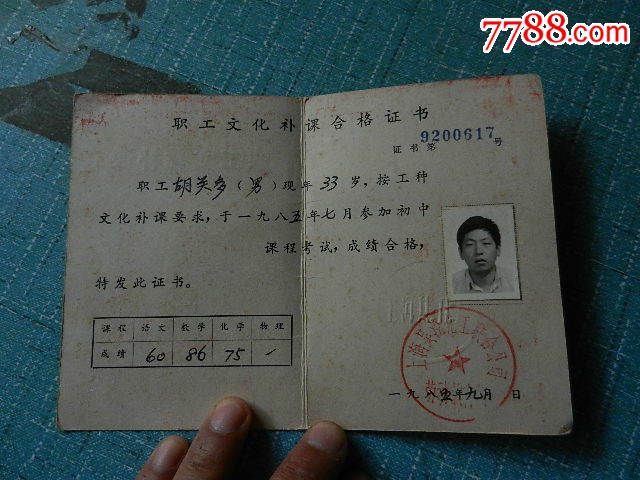 7788.com
职工文化补课合格证书
证书第9200617号
职工胡关多(男)现年33岁,按工种
文化补课要求,于一九八五年七月参加初中
课程考试,成绩合格,
特发此证书。
课程 语文 数学 化学 物理
成绩 60 86 75 /
一九八五年九月 日